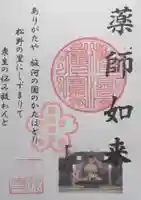 薬師如来
ありがたや 駿河の国のかたほとり
松野の里にしずまりて
衆生の悩み救わんと